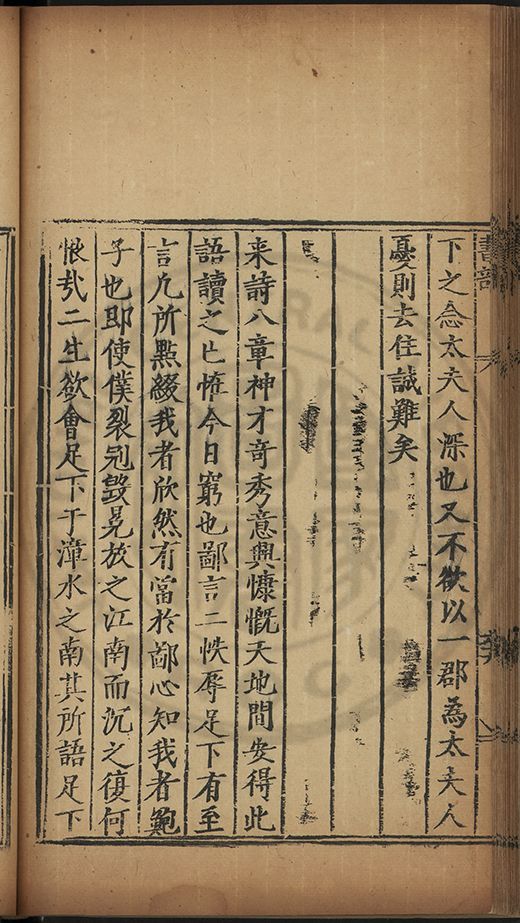 書部
下之念太夫人深也又不欲以一郡爲太夫人
憂則去住誠難矣
来詩八章神才竒秀意興慷慨天地間安得此
語讀之已惟今日窮也鄙言二帙辱足下有至
言凢所點綴我者欣然有當於鄙心知我者鮑
子也即使僕裂冠毁冕放之江南而沉之復何
恨㢤二生欲會足下于漳水之南其所語足下